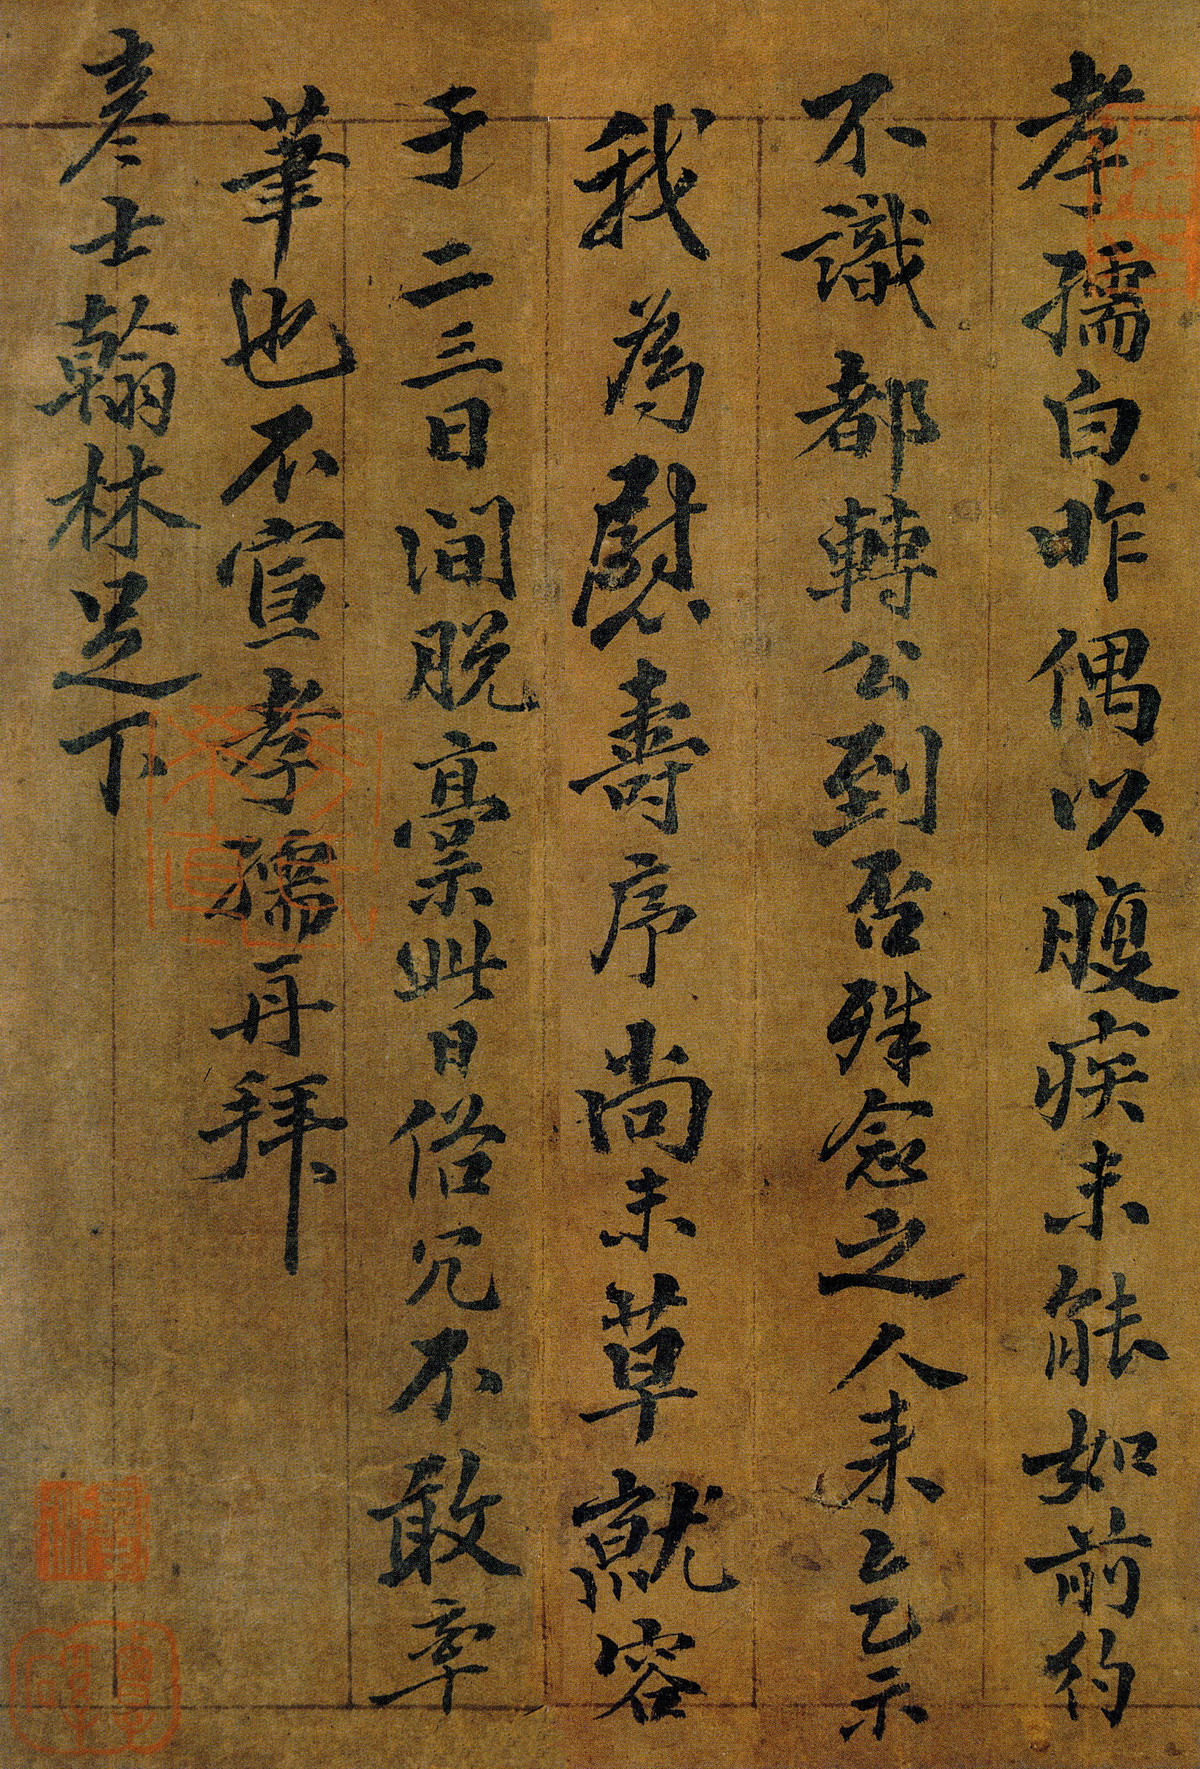 孝孺白昨偶以腹疾未能如前約
不識都轉公到否殊念之人来乞示
我為慰壽序尚未草就容
于二三日間脫稾此日俗冗不敢率
筆也不宣孝孺再拜
彥士翰林足下